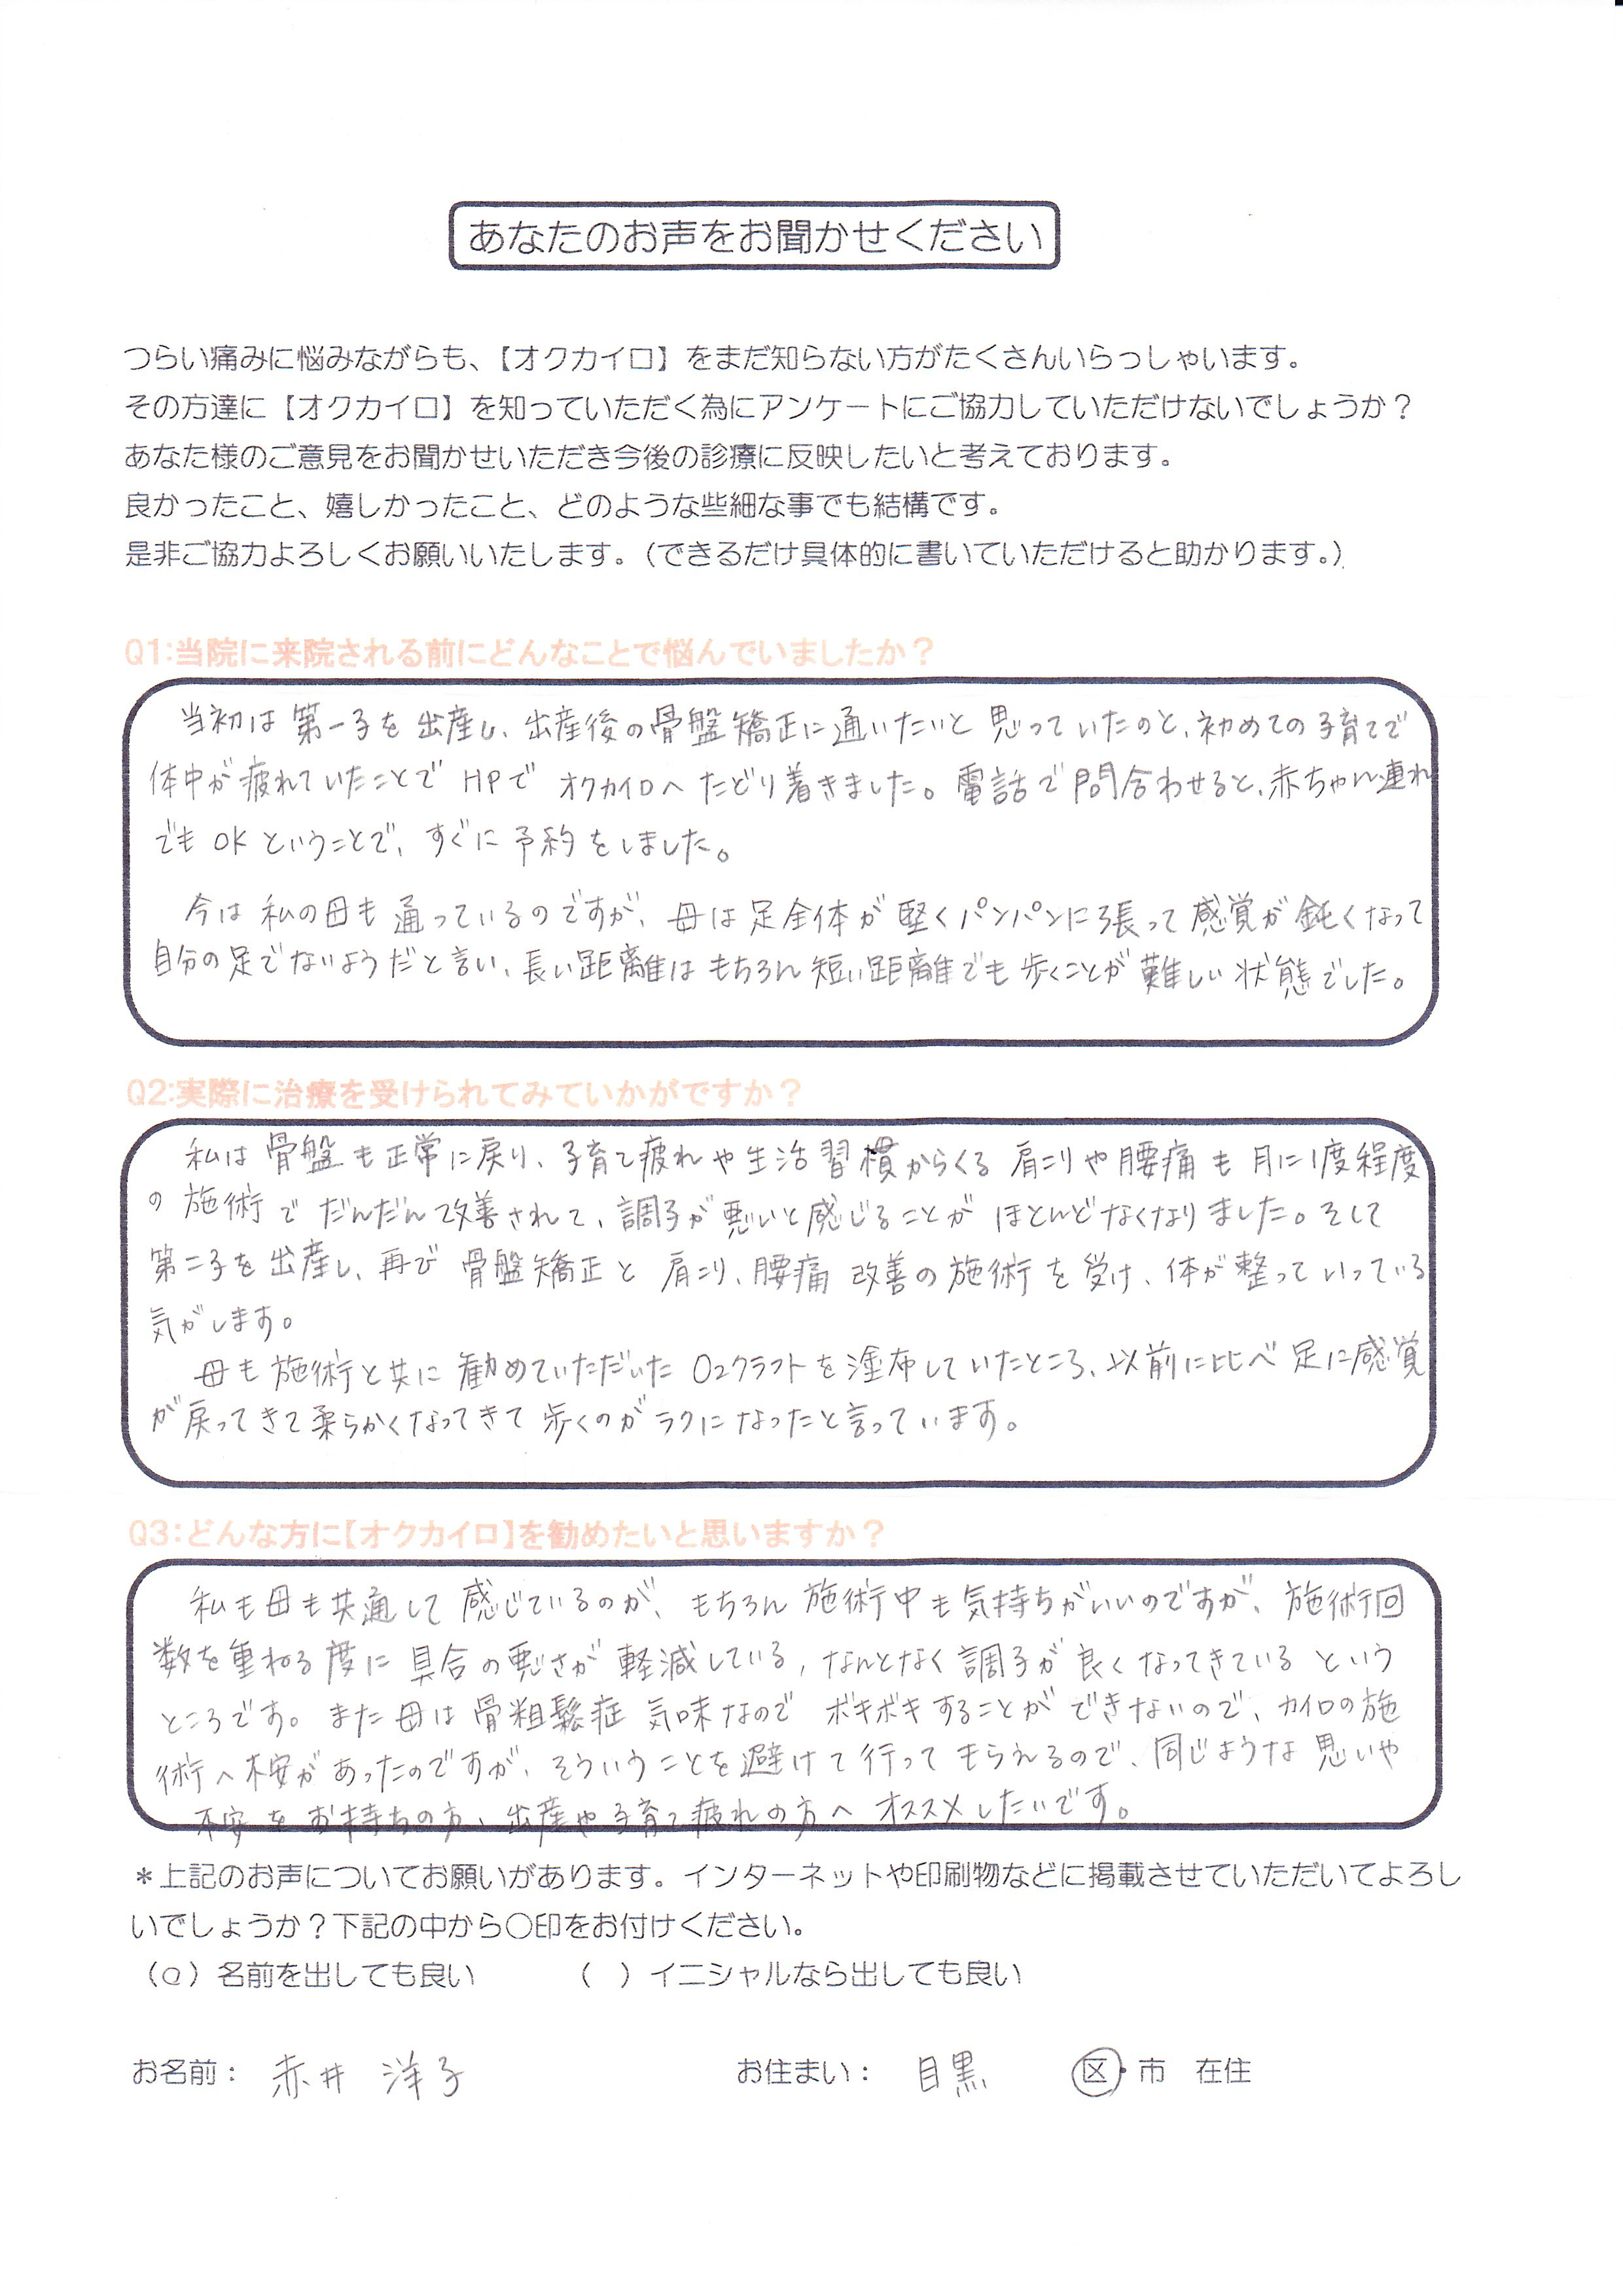 あなたのお声をお聞かせください
つらい痛みに悩みながらも、【オクカイロ】をまだ知らない方がたくさんいらっしゃいます。
その方達に【オクカイロ】を知っていただく為にアンケートにご協力していただけないでしょうか？
あなた様のご意見をお聞かせいただき今後の診療に反映したいと考えております。
良かったこと、嬉しかったこと、どのような些細な事でも結構です。
是非ご協力よろしくお願いいたします。（できるだけ具体的に書いていただけると助かります。）
Q1:当院に来院される前にどんなことで悩んでいましたか？
当初は第一子を出産し、出産後の骨盤矯正に通いたいと思っていたのと、初めての子育てで
体中が疲れていたことでHPでオクカイロへたどり着きました。電話で問合わせると、赤ちゃん連れ
でもOKということで、すぐに予約をしました。
今は私の母も通っているのですが、母は足全体が堅くパンパンに張って感覚が鈍くなって
自分の足でないようだと言い、長い距離はもちろん短い距離でも歩くことが難しい状態でした。
Q2:実際に治療を受けられてみていかがですか？
私は骨盤も正常に戻り、子育て疲れや生活習慣からくる肩こりや腰痛も月に1度程度
の施術でだんだん改善されて、調子が悪いと感じることがほとんどなくなりました。そして
第二子を出産し、再び骨盤矯正と肩こり、腰痛改善の施術を受け、体が整っていっている
気がします。
母も施術と共に勧めていただいたO2クラフトを塗布していたところ、以前に比べ足に感覚
が戻ってきて柔らかくなってきて歩くのがラクになったと言っています。
Q3:どんな方に【オクカイロ】を勧めたいと思いますか？
私も母も共通して感じているのが、もちろん施術中も気持ちがいいのですが、施術回
数を重ねる度に具合の悪さが軽減している，なんとなく調子が良くなってきているという
ところです。また母は骨粗鬆症気味なのでボキボキすることができないので、カイロの施
術へ不安があったのですが、そういうことを避けて行ってもらえるので、同じような思いや
不安をお持ちの方、出産や子育て疲れの方へオススメしたいです。
＊上記のお声についてお願いがあります。インターネットや印刷物などに掲載させていただいてよろし
いでしょうか？下記の中から〇印をお付けください。
（○）名前を出しても良い　（　）イニシャルなら出しても良い
お名前： 赤井 洋子　お住まい： 目黒　区・市 在住